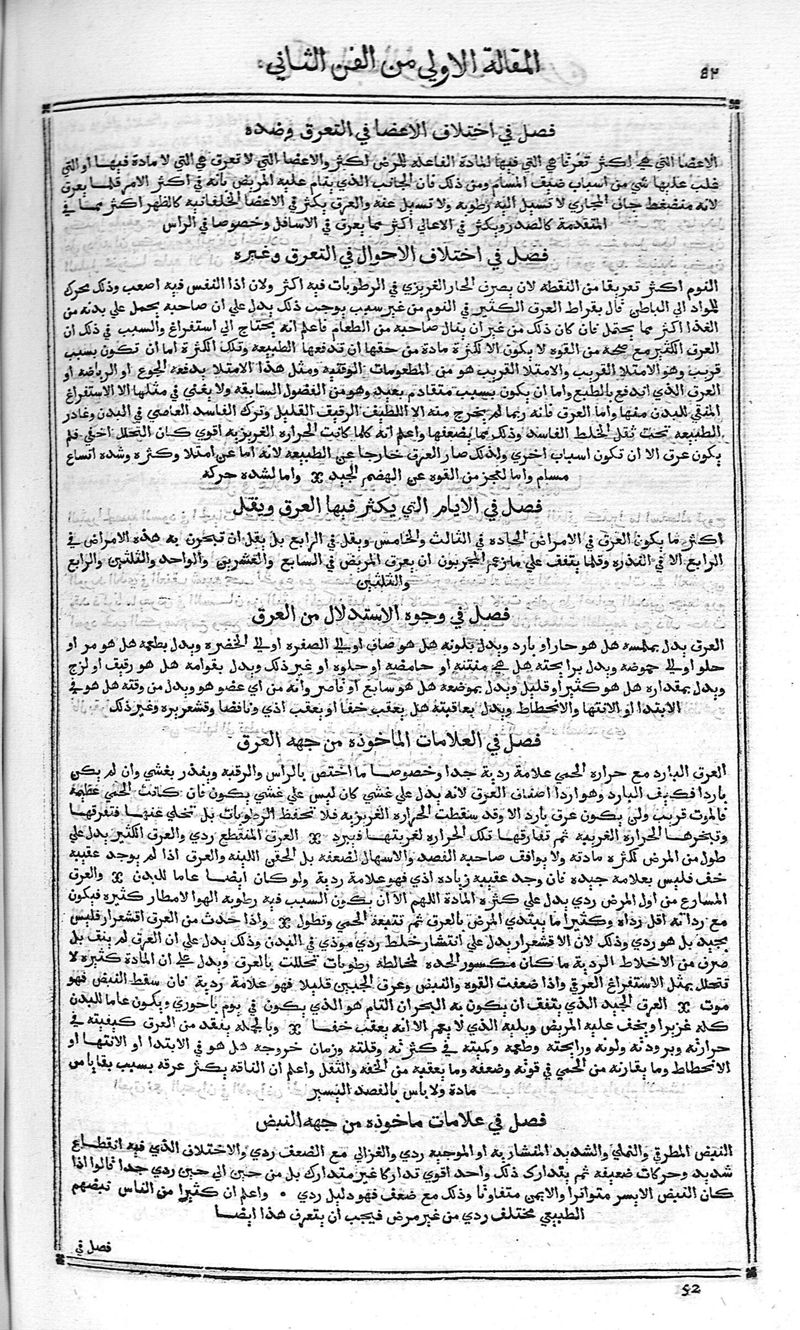 المقالة الاولي من الفن الثاني
٤٢
فصل في اختلاف الاعضا في التعرق وضده
الاعضا التي هي اكثر تعرقا هي التي فيها المادة الفاعله للمرض اكثر والاعضا التي لا تعرق هي التي لا مادة فيها او التي
غلب عليها شي من اسباب ضيف المسام ومن ذلك فان الجانب الذي ينام عليه المريض فانه في اكثر الامر قلما يعرق
لانه منضغط جاني المجاري لا تسيل اليه رطوبه ولا تسيل عنه والعرق يكثر في الاعضا الخلفانيه كالظهر اكثر مما في
المتقدمة كالصدر ويكثر في الاعالي اكثر مما يعرق في الاسافل وخصوصا في الراس
فصل في اختلاف الاحوال في التعرق وغيره
النوم اكثر تعريقا من النقطه لان يصرف الحار الغريزي في الرطوبات فيه اكثر ولان اذا النفس فيه اصعب وذلك محرك
للمواد الي الباطن قال بقراط العرق الكثير في النوم من غير سبب يوجب ذلك يدل علي ان صاحبه يحمل علي بدنه من
الغذا اكثر مما يحتمل فان كان ذلك من غير ان ينال صاحبه من الطعام فاعلم انه يحتاج الي استفراغ والسبب في ذلك ان
العرق الكثير مع صحة من القوه لا يكون الا لكثرة مادة من حقها ان تدفعها الطبيعه وتلك الكثرة اما ان تكون بسبب
قريب وهو الامتلا القريب والامتلا القريب هو من المطعومات الوقتيه ومثل هذا الامتلا يدفعه الجوع او الرياضه او
العرق الذي اندفع بالطبع واما ان يكون بسبب متقادم بعيد وهو من الفضول السابقه ولا يغني في مثلها الا الاستفراغ
المنقي للبدن منها واما العرق فانه ربما لم يخرج منه الا اللطيف الرقيف القليل وترك الفاسد العاصي في البدن وغادر
الطبيعه تحت ثقل الخلط الفاسد وذلك مما يضعفها واعلم انه كلما كانت الحراره الغريزيه اقوي كان التحلل اخفي فلم
يكون عرق الا ان تكون اسباب اخري ولذلك صار العرق خارجا عن الطبيعه لانه اما عن امتلا وكثره وشده اتساع
مسام واما لعجز من القوه عن الهضم الجيد واما لشده حركه
فصل في الايام التي يكثر فيها العرق ويقل
اكثر ما يكون العرق في الامراض الحاده في الثالث والخامس ويقل في الرابع بل يقل ان تبحرن به هذه الامراض في
الرابع الا في الندره وقلما يتفف علي ما زعم المجربون ان يعرق المريض في السابع والعشرين والواحد والثلثين والرابع
والثلثين
فصل في وجوه الاستدلال من العرق
العرق يدل بملمسه هل هو حار او بارد ويدل بلونه هل هو صاف او الي الصفره او الي الخضره ويدل بطعمه هل هو مر او
حلو او الي حموضه ويدل برايحته هل هي منتنه او حامضه او حلوه او غير ذلك ويدل بقوامه هل هو رقيف او لزج
ويدل بمقداره هل هو كثير او قليل ويدل بموضعه هل هو سابغ او قاصر وانه من اي عضو هو ويدل من وقته هل هو في
الابتدا او الانتها والانحطاط ويدل بعاقبته هل يعقب خفا او يعقب اذي ونافضا وقشعريره وغير ذلك
فصل في العلامات الماخوذه من جهه العرق
العرق البارد مع حراره الحمي علامة رديه جدا وخصوصا ما اختص بالراس والرقبه وينذر بغشي وان لم يكن
باردا فكيف البارد وهو اردا اصناف العرق لانه يدل علي غشي كان ليس علي غشي يكون فان كانت الحمي عظيمة
فالموت قريب ولن يكون عرق بارد الا وقد سقطت الحراره الغريزيه فلا تحفظ الرطوبات بل تخلي عنها فتفرقها
وتبخرها الحراره الغريبه ثم تفارقها تلك الحراره لغربتها فيبرد العرق المنقطع ردي والعرق الكثير يدل علي
طول من المرض لكثرة مادته ولا يوافف صاحبه الفصد والاسهال لضعفه بل الحقن اللينه والعرق اذا لم يوجد عقيبه
خف فليس بعلامه جيده فان وجد عقيبه زياده اذي فهو علامة ردية ولو كان ايضا عاما للبدن والعرق
المسارع من اول المرض ردي يدل علي كثره المادة اللهم الا ان يكون السبب فيه رطوبه الهوا لامطار كثيره فيكون
مع رداته اقل رداه وكثيرا ما يبتدي المرض بالعرق ثم تتبعه الحمي وتطول واذا حدث من العرق اقشعرار فليس
بجيد بل هو ردي وذلك لان الاقشعرار يدل علي انتشار خلط ردي موذي في البدن وذلك يدل علي ان العرق لم ينف بل
صرف من الاخلاط الردية ما كان مكسور الحده لمخالطة رطوبات تحللت بالعرق ويدل علي ان المادة كثيره لا
تتحلل بمثل الاستفراغ العرقي واذا ضعفت القوه والنبض وعرق الجبين قليلا فهو علامة رديه فان سقط النبض فهو
موت العرق الجيد الذي يتفف ان يكون به البحران التام هو الذي يكون في يوم باحوري ويكون عاما للبدن
كله غزيرا ويخف عليه المريض ويليه الذي لا يعم الا انه يعقب خفا وبالجمله ينفد من العرق كيفيته في
حرارته وبرودته ولونه ورايحته وطعمه وكميته في كثرته وقلته وزمان خروجه هل هو في الابتدا او الانتها او
الانحطاط وما يقارنه من الحمي في قوته وضعفه وما يعقبه من الخفه والثقل واعلم ان الناقه يكثر عرقه بسبب بقايا من
مادة ولا باس بالفصد اليسير
فصل في علامات ماخوذه من جهه النبض
النبض المطرقي والنملي والشديد المنشاريه او الموجيه ردي والغزالي مع الضعف ردي والاختلاف الذي فيه انقطاع
شديد وحركات ضعيفه ثم يتدارك ذلك واحد اقوي تداركا غير متدارك بل من حين الي حين ردي جدا قالوا اذا
كان النبض الايسر متواترا والايمن متفاوتا وذلك مع ضعف فهو دليل ردي واعلم ان كثيرا من الناس نبضهم
الطبيعي مختلف ردي من غير مرض فيجب ان يتعرف هذا ايضا
فصل في
52